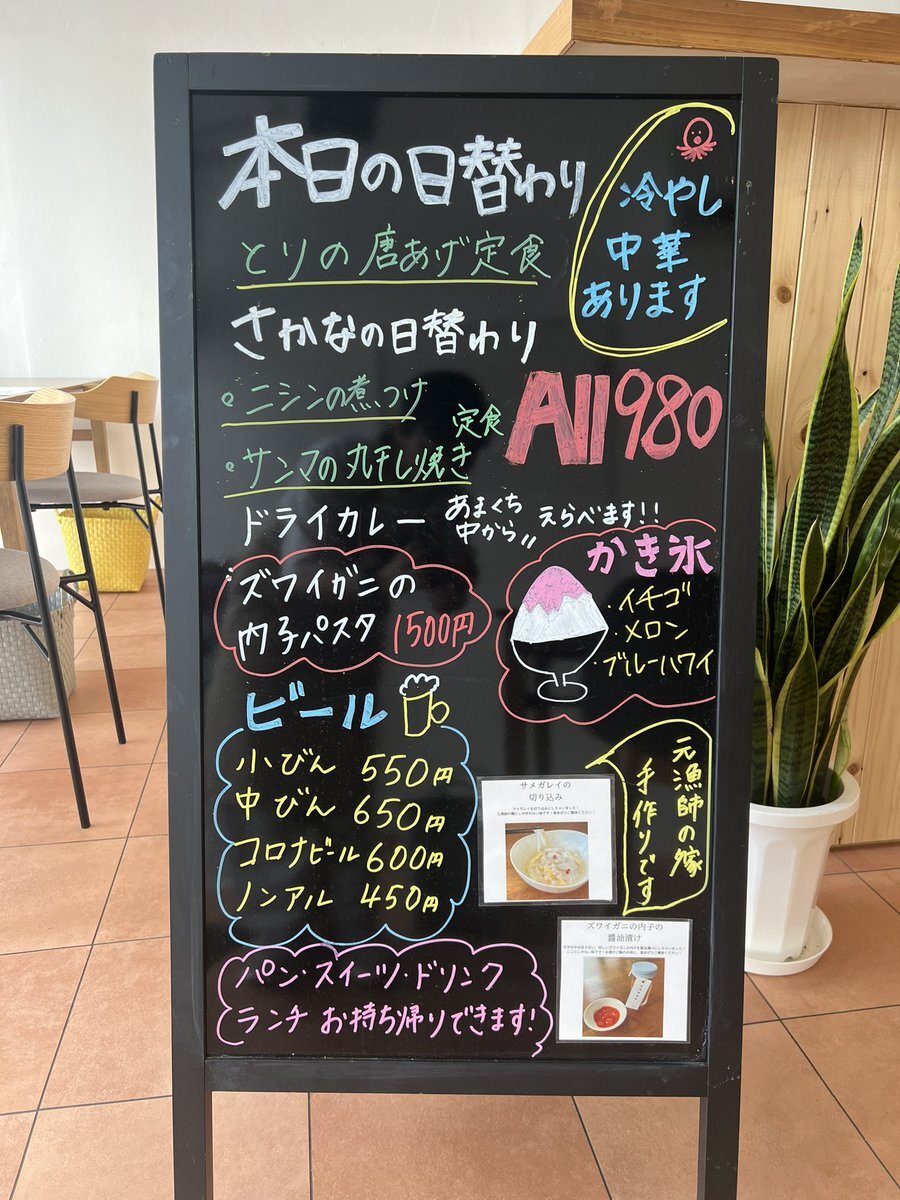 本日の日替わり
とりの唐あげ定食
冷やし
中華
あります
さかなの日替わり
・ニシンの煮つけ
・サンマの丸干し焼き
定食
All980
ドライカレー
あまくち
中から
えらべます!!
ズワイガニの
内子パスタ 1500円
かき氷
・イチゴ
・メロン
・ブルーハワイ
ビール
小びん 550円
中びん 650円
コロナビール 600円
ノンアル 450円
サメガレイの
切り込み
元漁師の嫁
手作りです
ズワイガニの内子の
醤油漬け
パン・スイーツ・ドリンク
ランチ お持ち帰りできます!